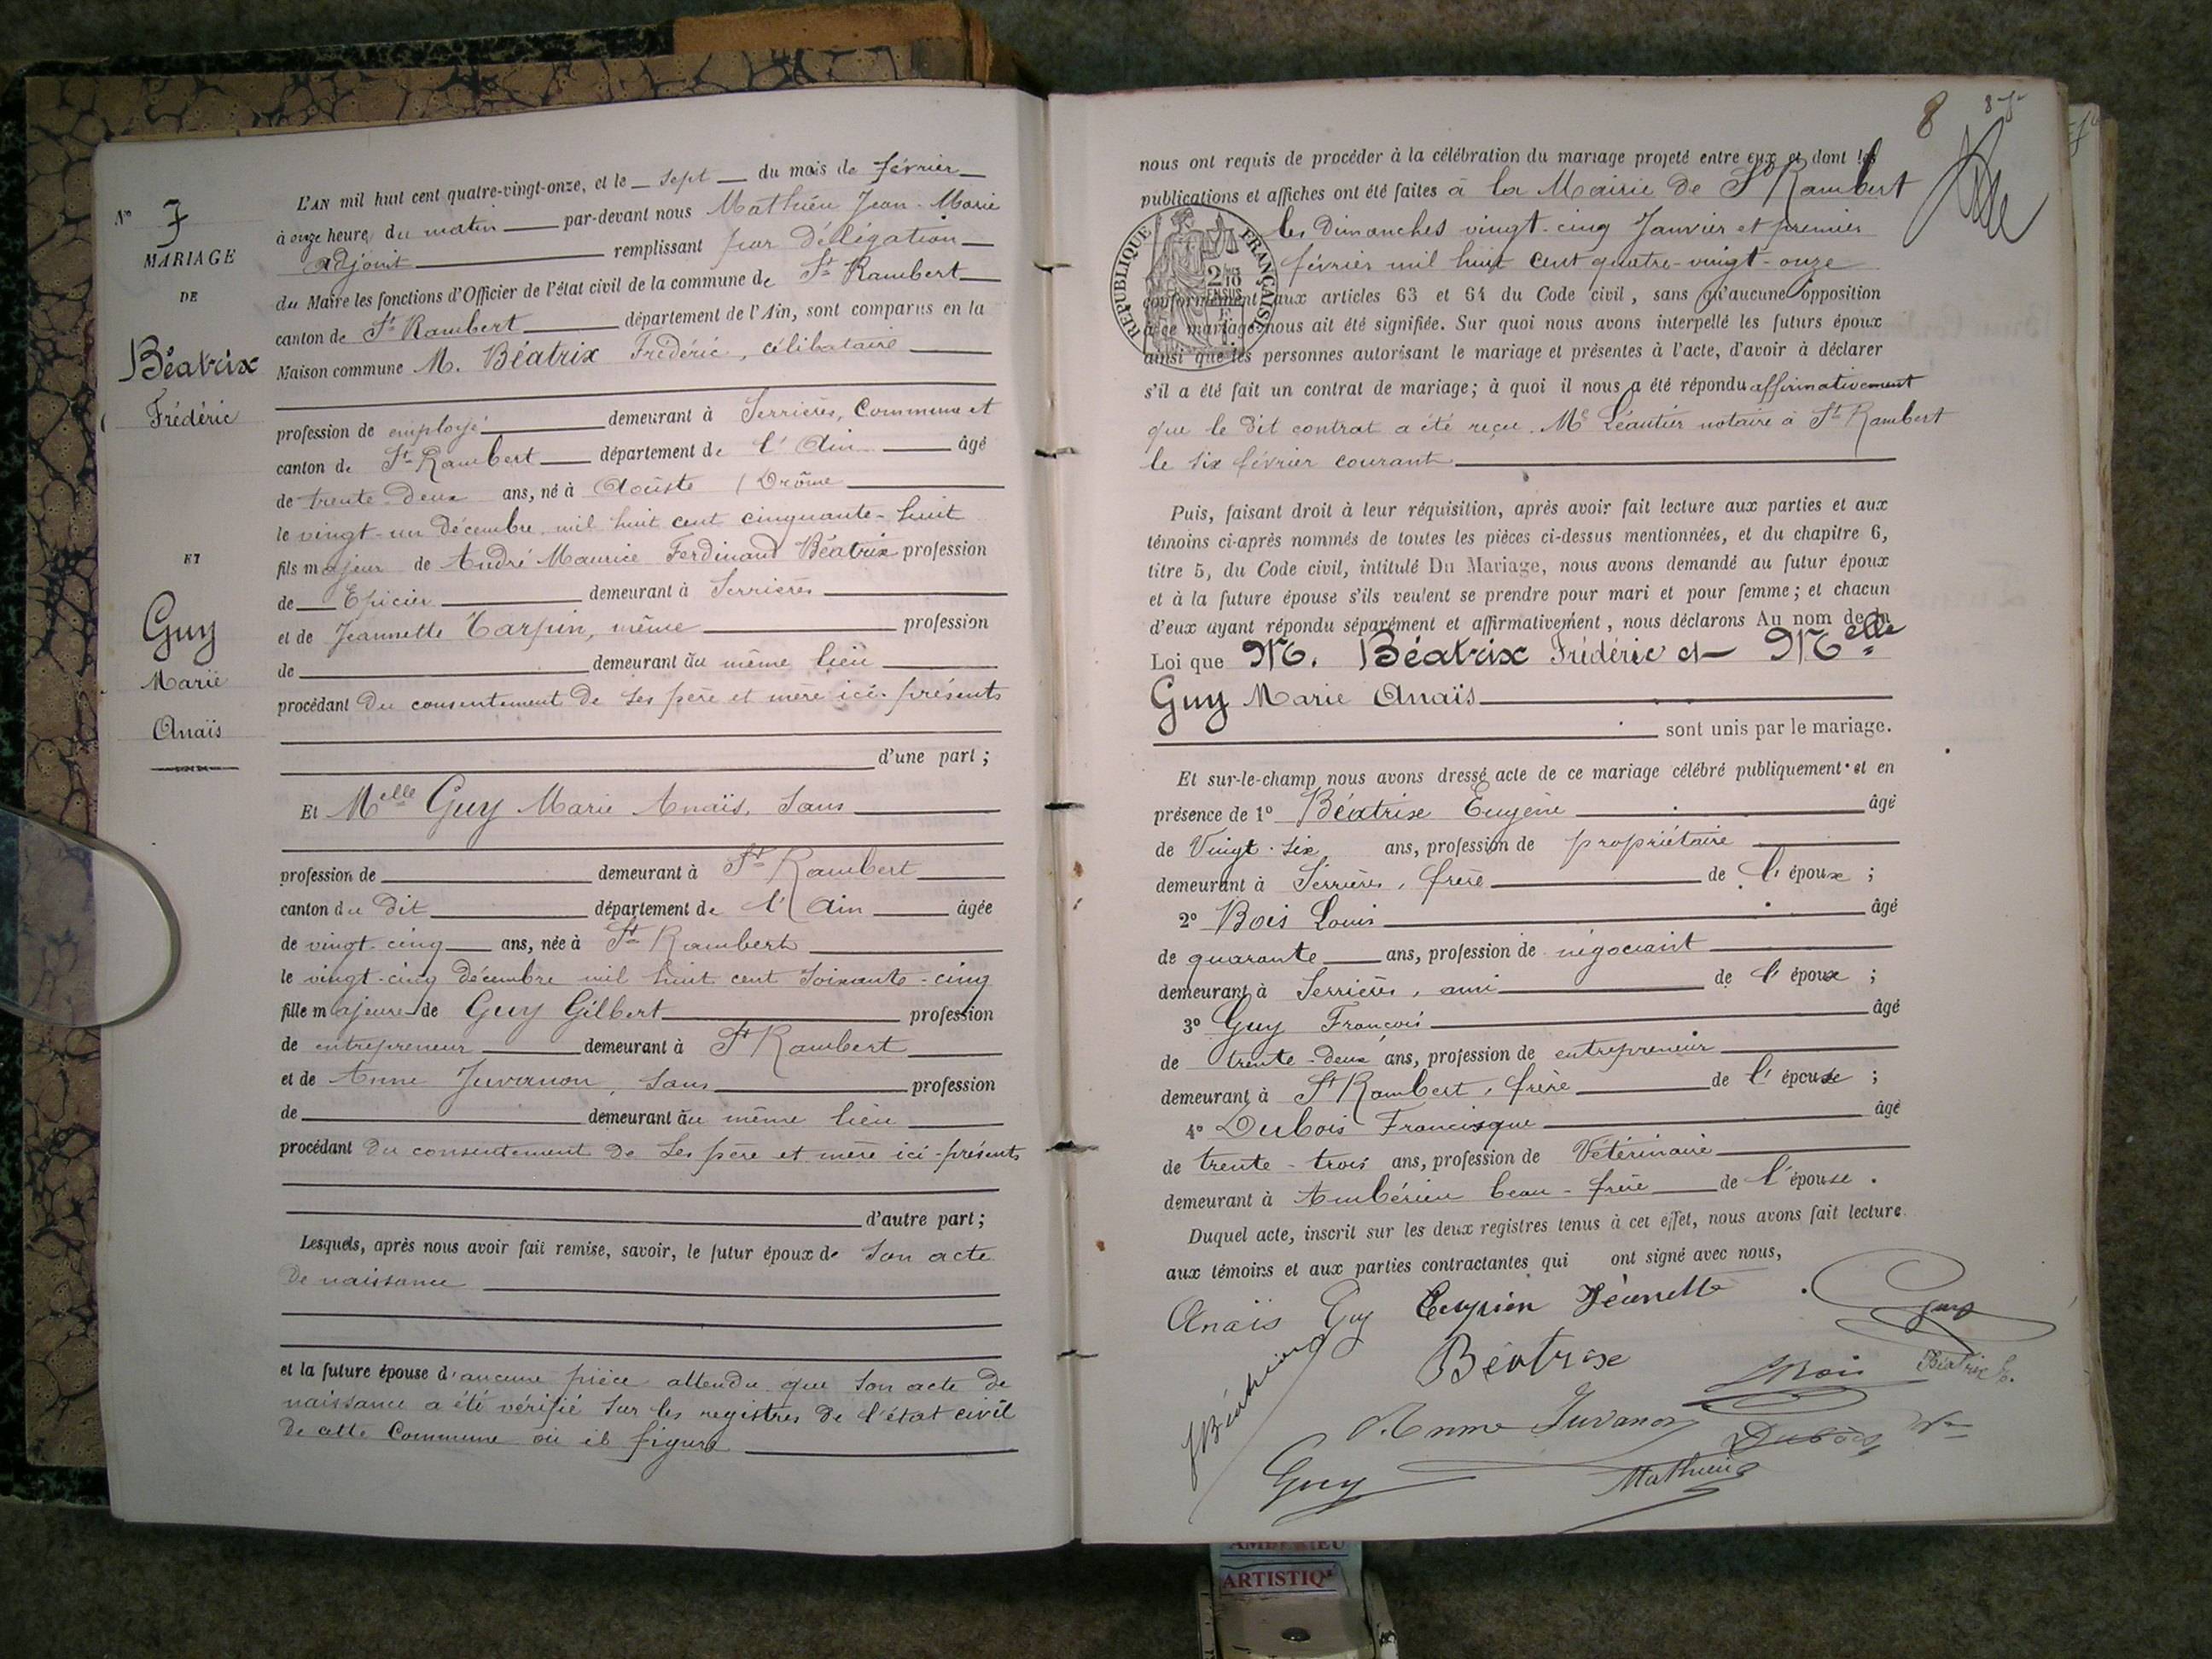 N° 7
MARIAGE
DE
Béatrix
Frédéric
ET
Guy
Marie
Anaïs
L'AN mil huit cent quatre-vingt-onze, et le sept du mois de février
à onze heures du matin par-devant nous Mathieu Jean-Marie
adjoint remplissant par délégation
du Maire les fonctions d'Officier de l'état civil de la commune de St Rambert
canton de St Rambert département de l'Ain, sont comparus en la
Maison commune M. Béatrix Frédéric, célibataire
profession de employé demeurant à Serrières, Commune et
canton de St Rambert département de l'Ain âgé
de trente-deux ans, né à Aouste (Drôme
le vingt-un décembre mil huit cent cinquante-huit
fils majeur de André Maurice Ferdinand Béatrix profession
de Epicier demeurant à Serrières
et de Jeannette Tarpin, même profession
de demeurant au même lieu
procédant du consentement de ses père et mère ici-présents
d'une part;
Et Melle Guy Marie Anaïs, sans
profession de demeurant à St Rambert
canton du dit département de l'Ain âgée
de vingt-cinq ans, née à St Rambert
le vingt-cinq décembre mil huit cent soixante-cinq
fille majeure de Guy Gilbert profession
de entrepreneur demeurant à St Rambert
et de Anne Juvanon, sans profession
de demeurant au même lieu
procédant du consentement de ses père et mère ici-présents
d'autre part;
Lesquels, après nous avoir fait remise, savoir, le futur époux de son acte
de naissance
et la future épouse d'aucune pièce attendu que son acte de
naissance a été vérifié sur les registres de l'état civil
de cette Commune où il figure
8
nous ont requis de procéder à la célébration du mariage projeté entre eux et dont les
publications et affiches ont été faites à la Mairie de St Rambert
les Dimanches vingt-cinq Janvier et premier
février mil huit cent quatre-vingt-onze
RÉPUBLIQUE FRANÇAISE
conformément aux articles 63 et 64 du Code civil, sans qu'aucune opposition
à ce mariage nous ait été signifiée. Sur quoi nous avons interpellé les futurs époux
ainsi que les personnes autorisant le mariage et présentes à l'acte, d'avoir à déclarer
s'il a été fait un contrat de mariage; à quoi il nous a été répondu affirmativement
que le dit contrat a été reçu Me Léautier notaire à St Rambert
le six février courant
Puis, faisant droit à leur réquisition, après avoir fait lecture aux parties et aux
témoins ci-après nommés de toutes les pièces ci-dessus mentionnées, et du chapitre 6,
titre 5, du Code civil, intitulé Du Mariage, nous avons demandé au futur époux
et à la future épouse s'ils veulent se prendre pour mari et pour femme; et chacun
d'eux ayant répondu séparément et affirmativement, nous déclarons Au nom de la
Loi que M. Béatrix Frédéric et Melle
Guy Marie Anaïs
sont unis par le mariage.
Et sur-le-champ nous avons dressé acte de ce mariage célébré publiquement et en
présence de 1° Béatrix Eugène âgé
de Vingt-six ans, profession de propriétaire
demeurant à Serrières, frère de l'époux;
2° Bois Louis âgé
de quarante ans, profession de négociant
demeurant à Serrières, ami de l'époux;
3° Guy François âgé
de trente-deux ans, profession de entrepreneur
demeurant à St Rambert, frère de l'épouse;
4° Dubois Francisque âgé
de trente-trois ans, profession de Vétérinaire
demeurant à Ambérieu beau-frère de l'épouse.
Duquel acte, inscrit sur les deux registres tenus à cet effet, nous avons fait lecture
aux témoins et aux parties contractantes qui ont signé avec nous,
Anaïs Guy Jeunette Guy
Béatrix Bois Béatrix
Anne Juvanon Dubois
Guy Mathieu
AMBÉRIEU
ARTISTIQ